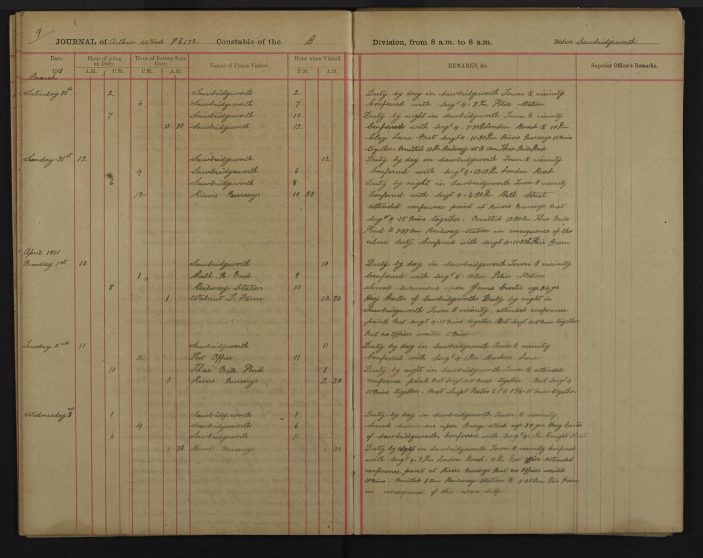 9
JOURNAL of Arthur Wood P.C. 172 Constable of the B Division, from 8 a.m. to 8 a.m. Station Sawbridgeworth
Date. Hour of going on Duty. Hour of Return from Duty. Names of Places Visited. Hour when Visited. REMARKS, &c. Superior Officer's Remarks.
A.M. P.M. P.M. A.M. P.M. A.M.
March
Saturday 30th 2 Sawbridgeworth 2 Duty by day in Sawbridgeworth Town & vicinity
6 Sawbridgeworth 7 Conferred with Sergt 4. 2 Pm Police Station
7 Sawbridgeworth 10 Duty by night in Sawbridgeworth Town & vicinity
12 30 Sawbridgeworth 12 Conferred with Sergt 4. 7.30 Pm London Road & 10 Pm
Lane Met Sergt 4. 11.30 Pm Rivers Nurserys 15 Mins
together. Omitted Railway Three Mile Pond
Sunday 31st 12 Sawbridgeworth 12 Duty by day in Sawbridgeworth Town & vicinity
4 Sawbridgeworth 6 Conferred with Sergt 4. London Road
6 Sawbridgeworth 8 Duty by night in Sawbridgeworth Town & vicinity
12 Rivers Nurserys 10 30 Conferred with Sergt 4. 6.30 Pm Bell Street
attended conference point at Rivers Nurserys Met
Sergt 4. 15 Mins together. Omitted 12.30 Am Three Mile
Pond & Am Railway Station in consequence of the
above duty Conferred with Sergt 4. Green
April 1901
Monday 1st 10 Sawbridgeworth 10 Duty by day in Sawbridgeworth Town & vicinity
1 End 9 Conferred with Sergt 4. 10 Am Police Station
8 Railway Station 10 Served Summons upon James Curtis age 36 yrs
1 Walnut T. Farm 12 30 Hay Carter of Sawbridgeworth Duty by night in
Sawbridgeworth Town & vicinity, attended conference
points Met Sergt 4. 15 Mins together Met Sergt 4. 15 Mins together
Met no Officer waited 15 Mins
Tuesday 2nd 11 Sawbridgeworth 11 Duty by day in Sawbridgeworth Town & vicinity
Post Office 11 Conferred with Sergt 4. 1 Pm Lane
10 Three Mile Pond 1 Duty by night in Sawbridgeworth Town & attended
3 Rivers Nurserys 2 30 conference points Met Sergt 4. 15 Mins together Met Sergt 4
15 Mins together. Met Supt Foster & P.C. 176. 15 Mins together
Wednesday 3rd 1 Sawbridgeworth 1 Duty by day in Sawbridgeworth Town & vicinity
4 Sawbridgeworth 6 Served Summons upon George Wood age 32 yrs Hay Carter
6 Sawbridgeworth 11 of Sawbridgeworth Conferred with Sergt 4. 1 Pm Knight Street
1 30 Rivers Nurserys 1 30 Duty by night in Sawbridgeworth Town & vicinity Conferred
with Sergt 4. 8 Pm London Road. 11 Pm Post Office attended
conference point at Rivers Nurserys Met no Officer waited
15 Mins. Omitted Am Railway Station & 4.30 Am Green
in consequence of the above duty